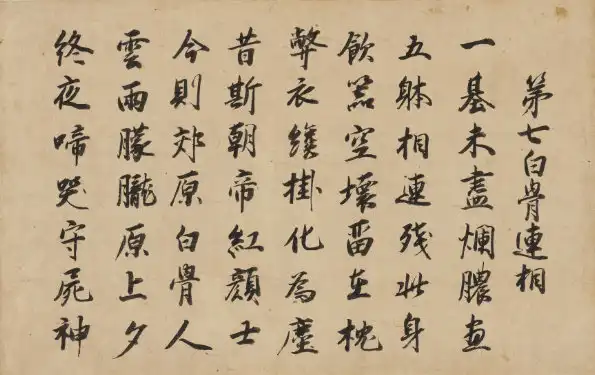 第七白骨連相
一基未盡爛膿
五躰相連残此身
飲噐空壊留在枕
弊衣纔掛化為塵
昔斯朝帝紅顔士
今則郊原白骨人
雲雨朦朧原上夕
終夜啼哭守屍神